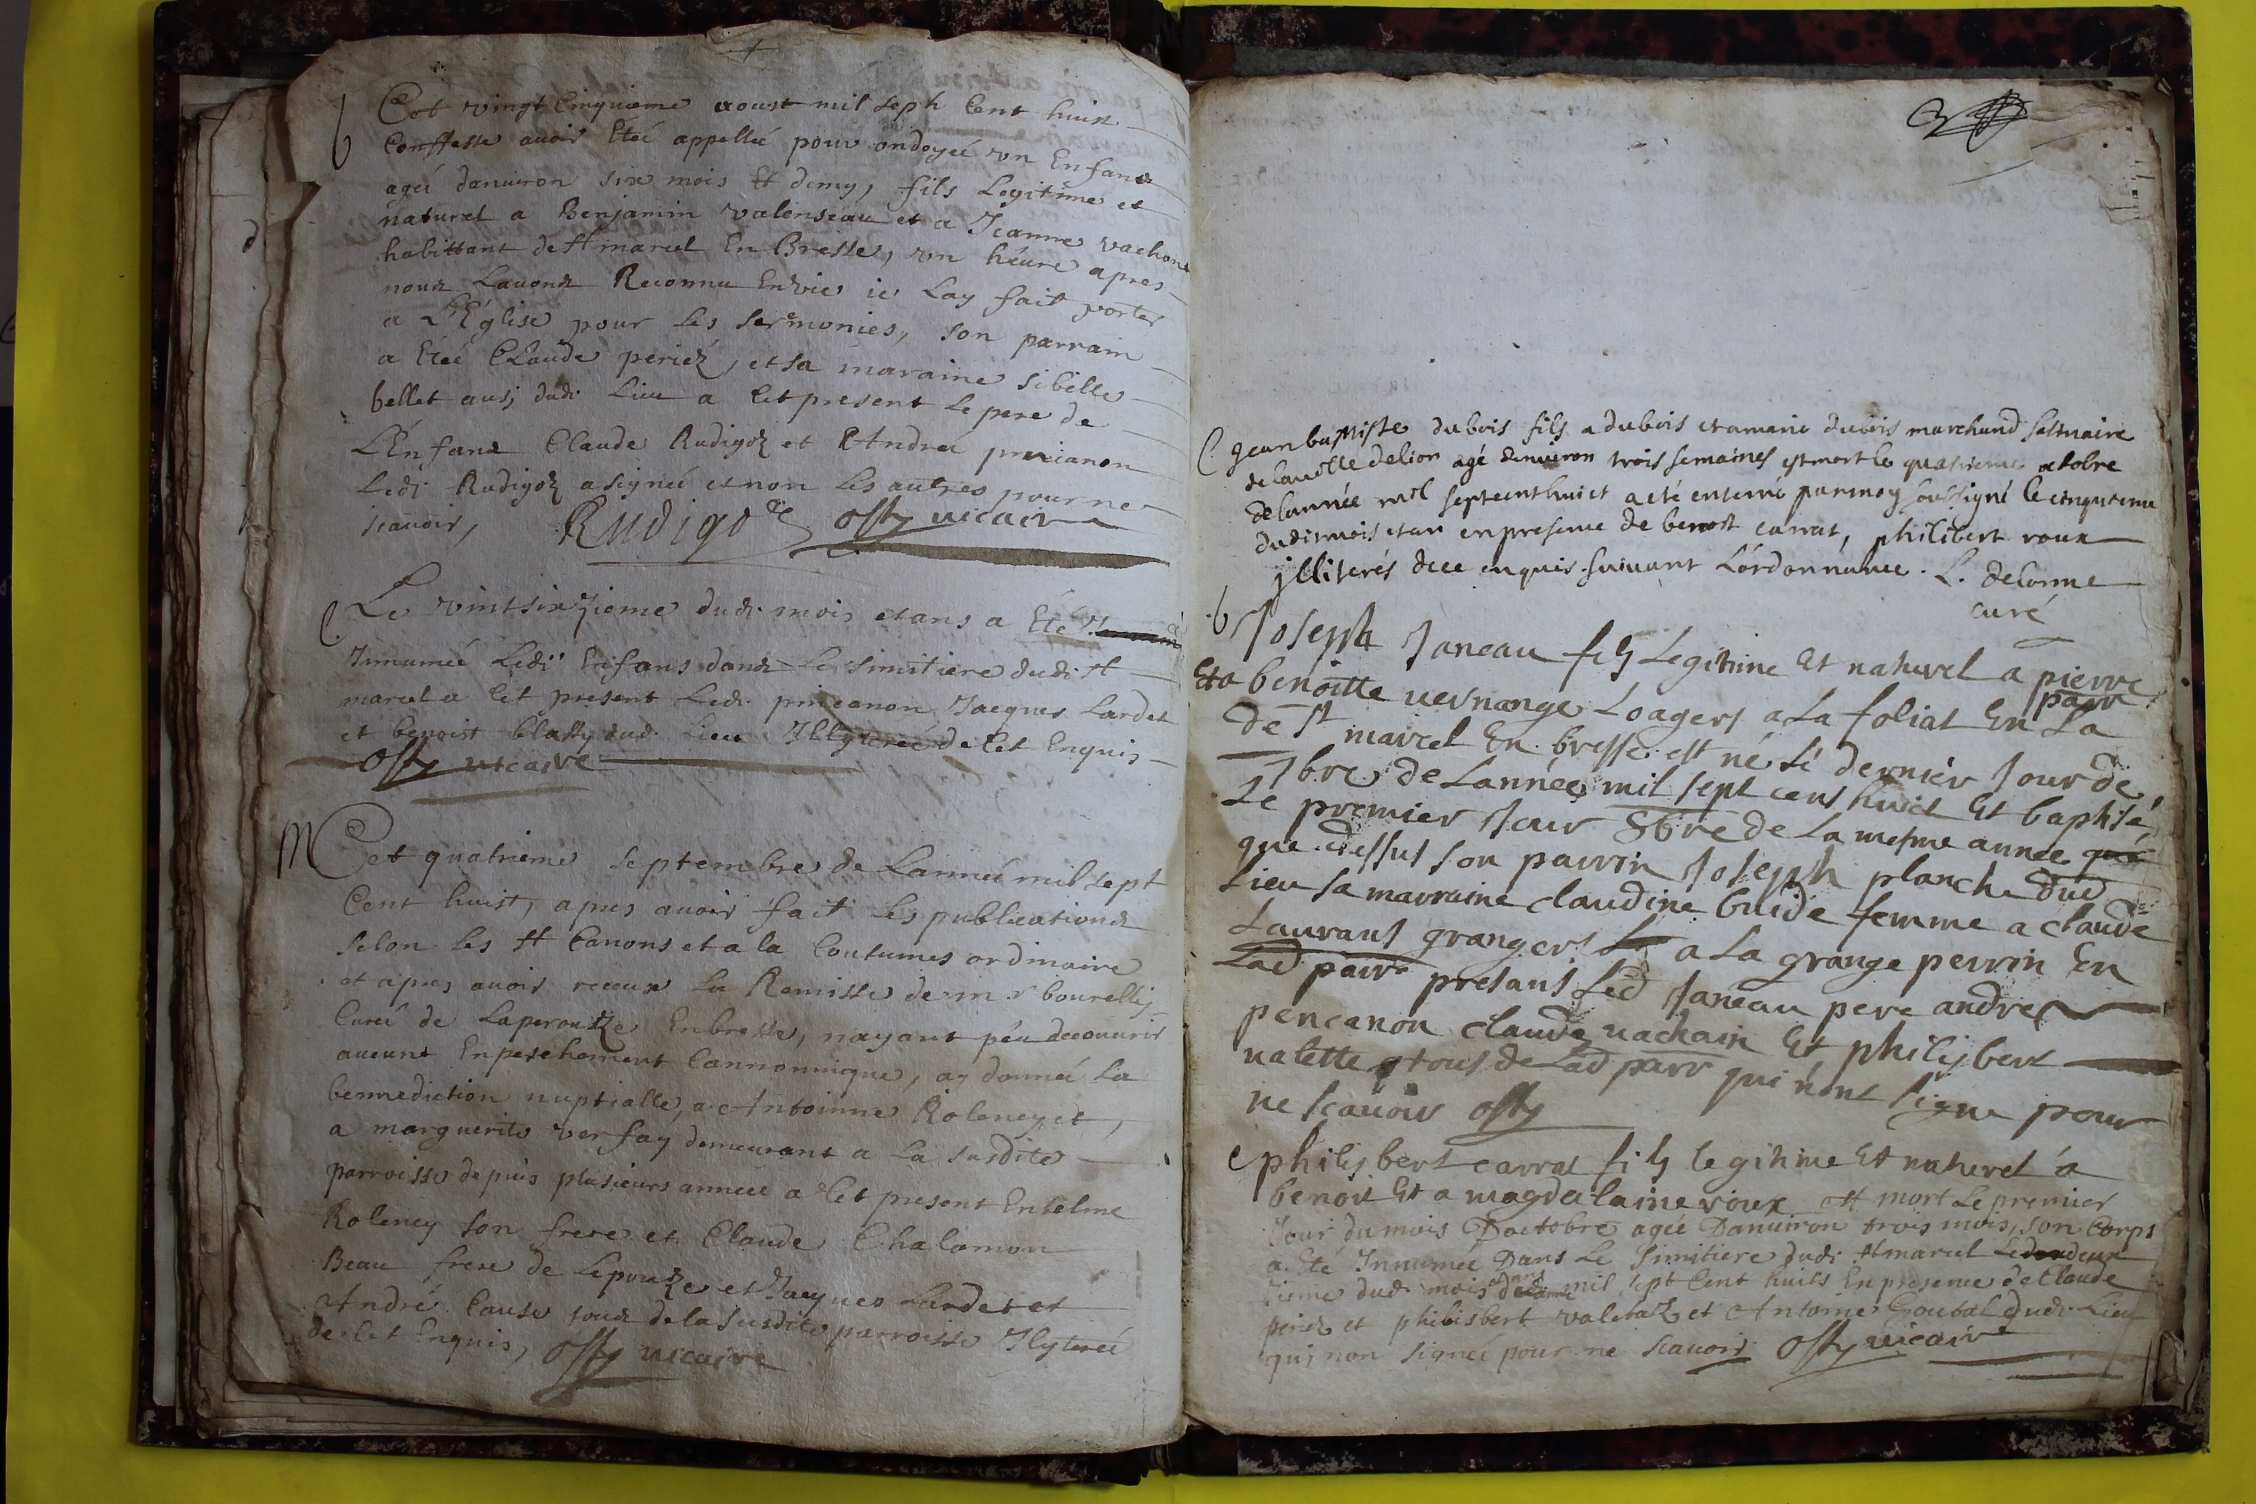 b
Cet vingt Cinquieme aoust mil seph Cent huist
Conffesse avoir Etéé appelléé pour ondoyéé vn Enfans
agéé danviron six mois et demy, fils Legitime et
naturel a Benjamin valenseau et a Jeanne vachon
habittant de st marcel En Bresse, vn héure apres
nous Lavons Reconnu En vie ie Lay fait porter
a L'Eglise pour Les seremonies, son parrain
a Etéé Claude periez, et sa maraine sibille
bellet ausj dudi Lieu a Cet present Le pere de
L'Enfans Claude Rudigoz et Andre princanon
Ledi Rudigoz a signéé et non Les autres pour ne
scavoir, Rudigoz Osty vicaire
Le vintsixzieme dudi mois et ans a Eté
Jnnuméé Ledi Enfans dans Le simitiere dudi st
marcel a Cet present Ledi princanon Jacques Lardet
et benoist blatty dud Lieu Jllyteréé de Cet Enquis
Osty vicaire
M
Cet quatrieme septembre de Lannéé mil sept
Cent huist, apres avoir fait Les publications
selon Les st Canons et a la Coutumes ordinaire
et apres avoir receux La Remisse de mr bourellis
Curéé de Laperouze En bresse, nayant péu decouvrir
aucuns Enpeschement Cannonnique, ay donnéé La
bennediction nuptialle, a Antoinne Roleney et
a marguerite verfay demeurant a La susdite
parroisse depuis plusieurs annéé a Cet present Entelme
Roleney son frere et Claude Chalamon
Beau frere de Lepouze et Jacques Lardet et
André Cause tous de la susdite parroisse Jlyteréé
de Cet Enquis, Osty vicaire
Jean baptiste dubois fils a dubois et a marie dubois marchand
de la ville de lion agé denviron trois semaines est mort le quatrieme octobre
de lannée mil sept cent huict a eté enterré par moy soussigné le cinquieme
dudi mois et an en presence de benoit carrat, philibert roux
jlliterés de ce enquis suivant L'órdonnance. L. delorme
curé
b
Joseph Janeau fils Legitime Et naturel a pierre
Et a benoitte vernange Loagers a La foliat En La parr
de st marcel En bresse est né le dernier Jour de
7bre de Lannéé mil sept cens huict Et baptisé
Le premier Jour 8bre de La mesme année
que dessus son parrin Joseph planche dud
Lieu sa marraine claudine buide femme a claude
Laurans grangers a La grange perrin En
Lad parr presans Led Janeau pere andre
pencanon claude vachain Et philisbert
valette tous de Lad parr qui n'ont signe pour
ne scavoir Osty
philisbert carrat fils legitime Et naturel a
benoit Et a magdalaine roux est mort Le premier
Jour du mois Doctobre agéé Danviron trois mois, son Corps
a Eté Jnnuméé Dans Le simitiere dudi st marcel Le deux
zieme dudi mois mil sept Cent huits En presence de Claude
periez et philisbert valetaz et Antoine Goubal dudi Lieu
qui non signéé pour ne scavoir Osty vicaire